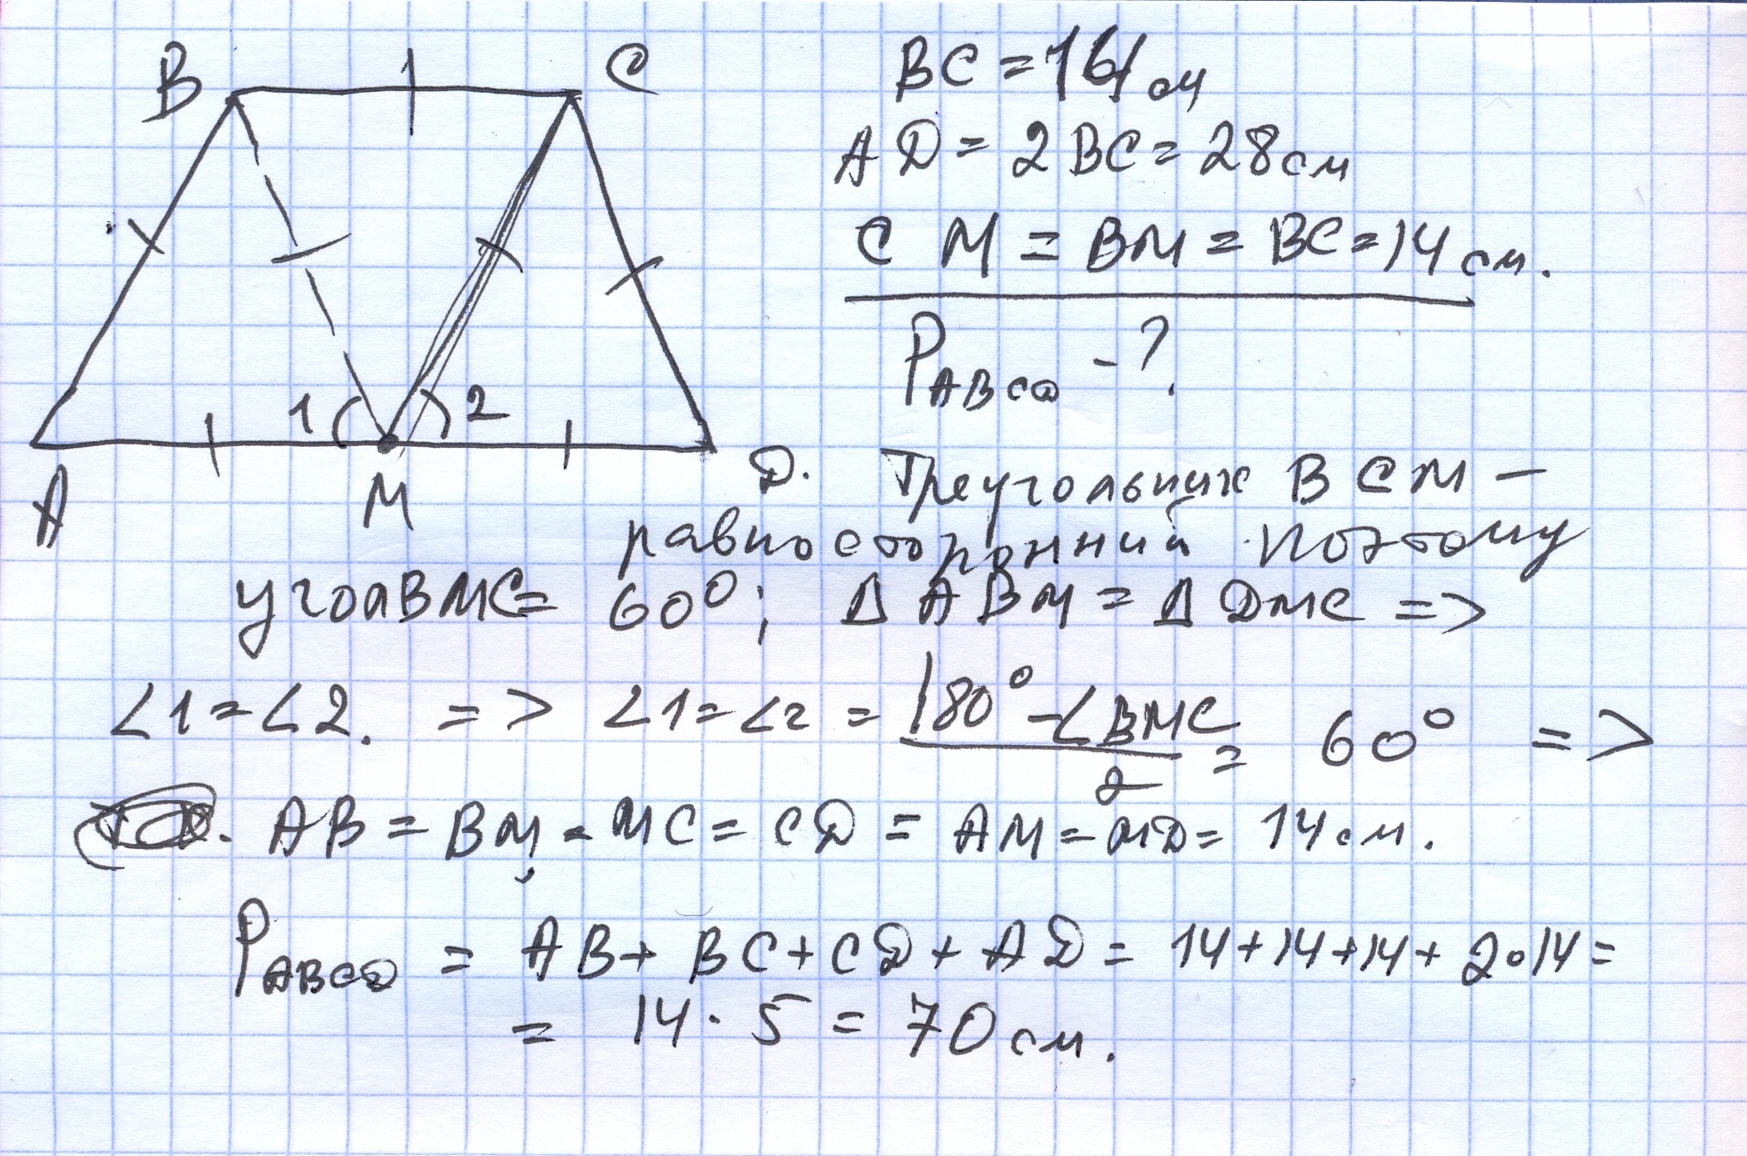 B C
BC = 14 см
AD = 2BC = 28 см
CM = BM = BC = 14 см.
P ABCD - ?
1 2
A M D.
Треугольник BCM –
равносторонний. Поэтому
угол BMC = 60°; Δ ABM = Δ DMC =>
∠1 = ∠2. => ∠1 = ∠2 = (180° - ∠BMC)/2 = 60° =>
AB = BM = MC = CD = AM = MD = 14 см.
P ABCD = AB + BC + CD + AD = 14 + 14 + 14 + 2∘14 =
= 14 · 5 = 70 см.